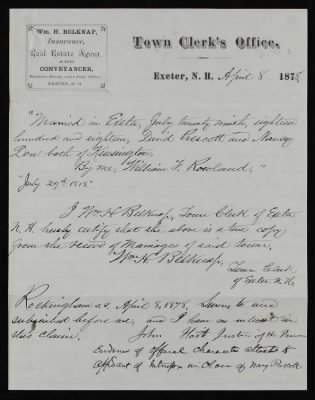 Wm. H. BELKNAP,
Insurance,
Real Estate Agent,
AND
CONVEYANCER,
EXETER, N. H.
Town Clerk's Office,
Exeter, N. H. April 8 1878
"Married in Exeter, July twenty ninth, eighteen
hundred and eighteen, David Prescott and Nancy
Dow both of Kensington,
By me, William F. Rowland."
"July 29th 1818."
I Wm H Belknap, Town Clerk of Exeter
N. H. hereby certify that the above is a true copy
from the record of Marriages of said town.
Wm H. Belknap,
Town Clerk
of Exeter N. H.
Rockingham ss. April 8, 1878, Sworn to and
subscribed before me, and I have no interest in
this claim. John Justice of the Peace
Evidence of official character attached to
affidavit of in claim of Prescott